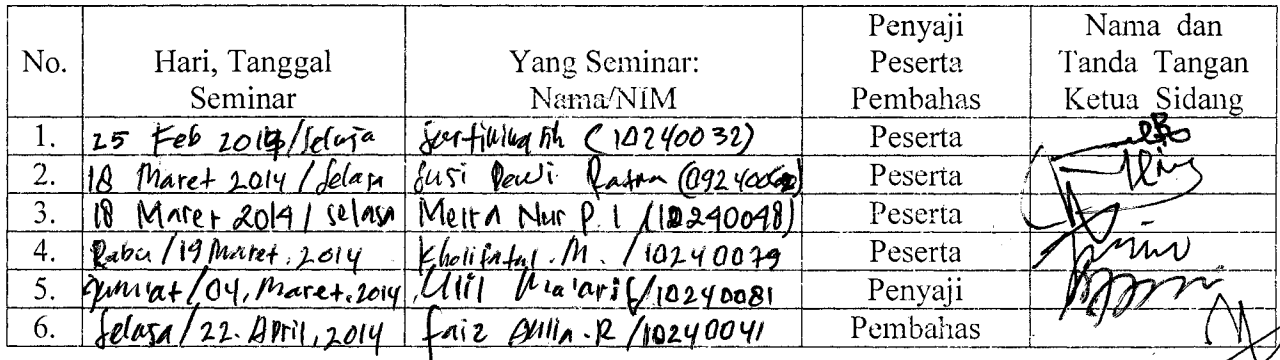 No. Hari, Tanggal Seminar Yang Seminar: Nama/NIM Penyaji Peserta Pembahas Nama dan Tanda Tangan Ketua Sidang
1. 25 Feb 2014/Selasa (10240032) Peserta
2. 18 Maret 2014 / Selasa Susi Dewi Ratna Peserta
3. 18 Maret 2014 / selasa Meita Nur P. I (10240048) Peserta
4. Rabu / 19 Maret. 2014 Kholifatul. M. / 10240079 Peserta
5. Jum'at / 04, Maret. 2014 Ulil Ma'arif / 10240081 Penyaji
6. Selasa / 22. April, 2014 Faiz Aulia. R / 10240041 Pembahas